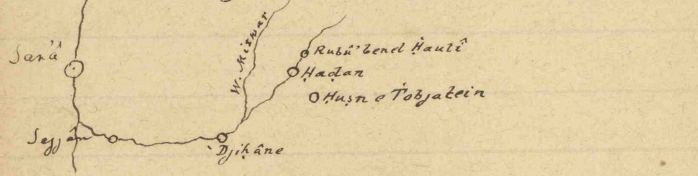 Ṣanʿâ
W. Miswar
Rubûʿ benel Ḥaulî
Ḥaḍan
Ḥuṣn e Ṫobjatein
Seyyân
Djiḥâne